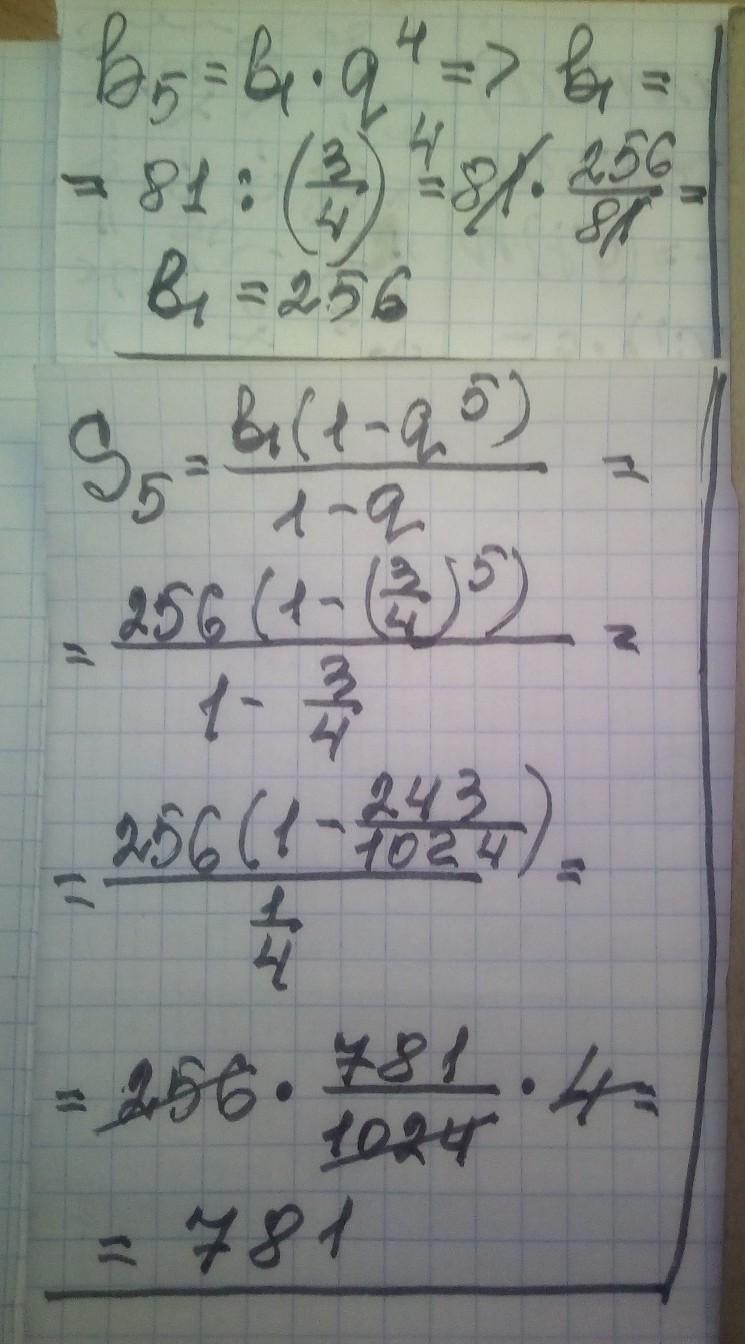 b₅ = b₁ · q⁴ => b₁ =
= 81 : (3/4)⁴ = 81 · 256/81 =
b₁ = 256
S₅ = b₁(1 - q⁵)/(1 - q) =
= 256(1 - (3/4)⁵)/(1 - 3/4) =
= 256(1 - 243/1024)/(1/4) =
= 256 · 781/1024 · 4 =
= 781